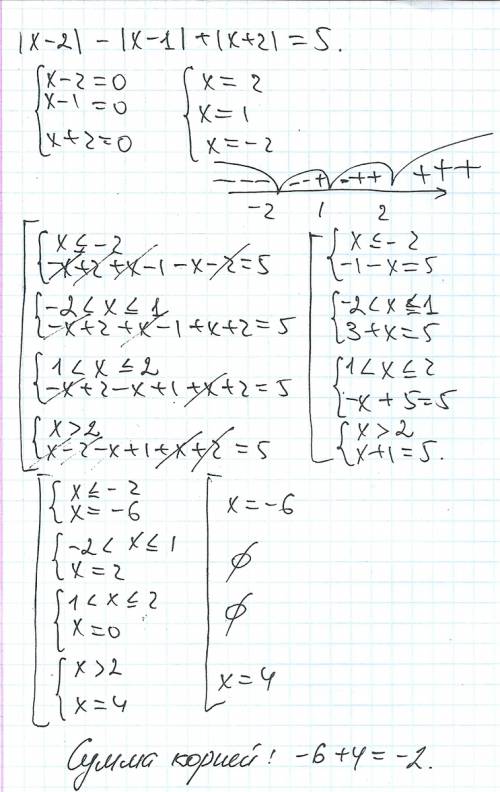 |x-2| - |x-1| + |x+2| = 5.
x-2=0 x=2
x-1=0 x=1
x+2=0 x=-2
--- --+ -++ +++
-2 1 2
x≤-2 x≤-2
-x+2+x-1-x-2=5 -1-x=5
-2<x≤1 -2<x≤1
-x+2+x-1+x+2=5 3+x=5
1<x≤2 1<x≤2
-x+2-x+1+x+2=5 -x+5=5
x>2 x>2
x-2-x+1+x+2=5 x+1=5.
x≤-2
x=-6 x=-6
-2< x≤1
x=2 ∅
1<x≤2
x=0 ∅
x>2
x=4 x=4
Сумма корней: -6+4=-2.